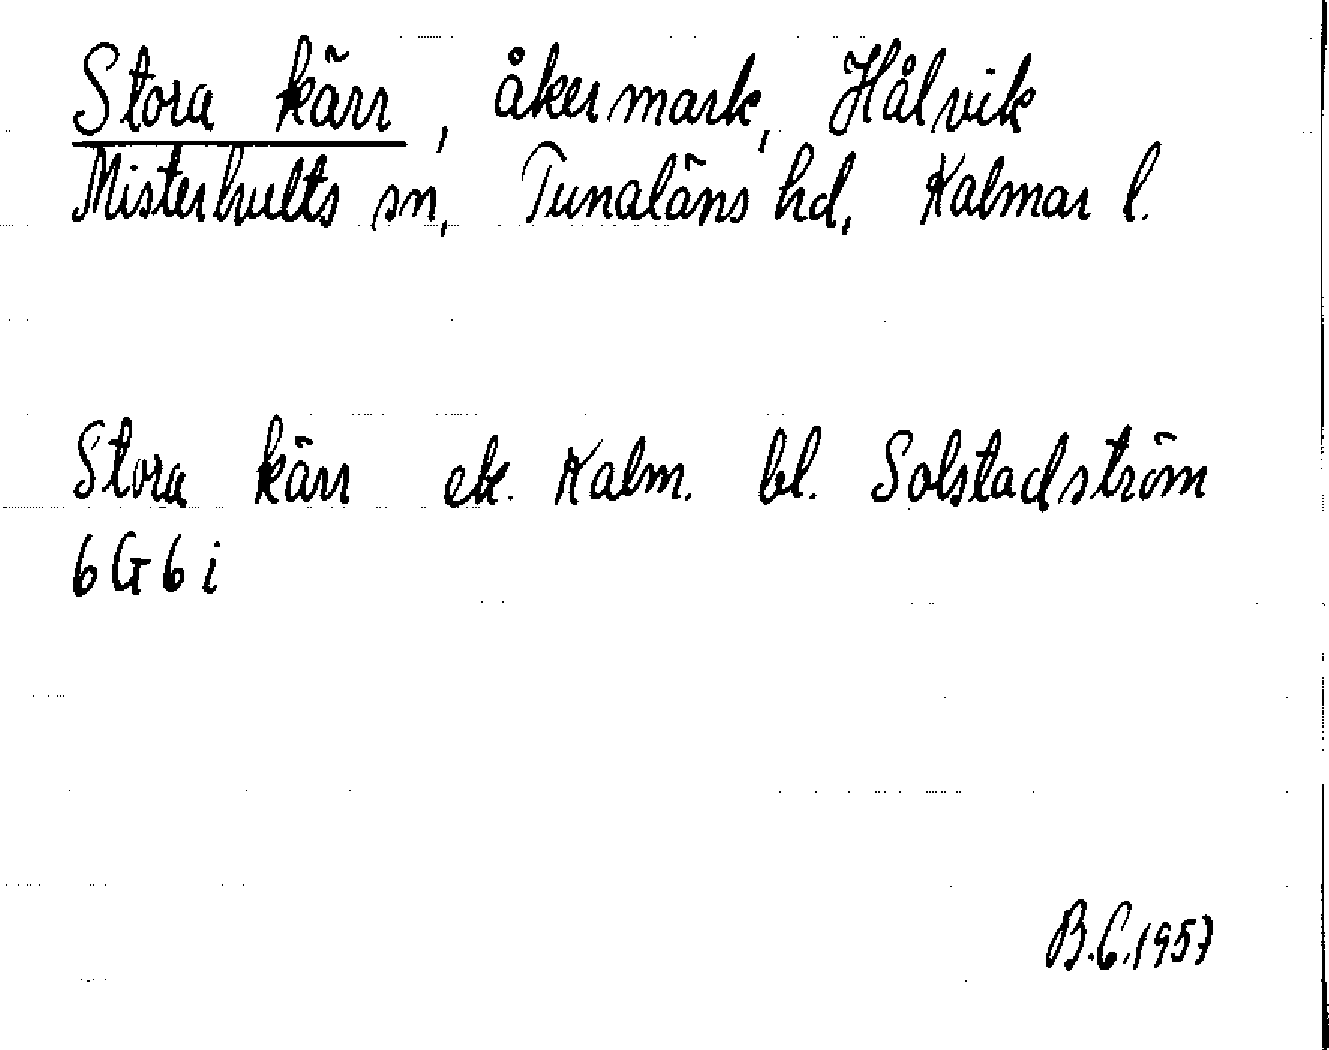 Stora kärr, åkermark, Hålvik
Misterhults sn, Tunaläns hd, Kalmar l.
Stora kärr ek. Kalm. bl. Solstadström
6G6i
B.C.1957